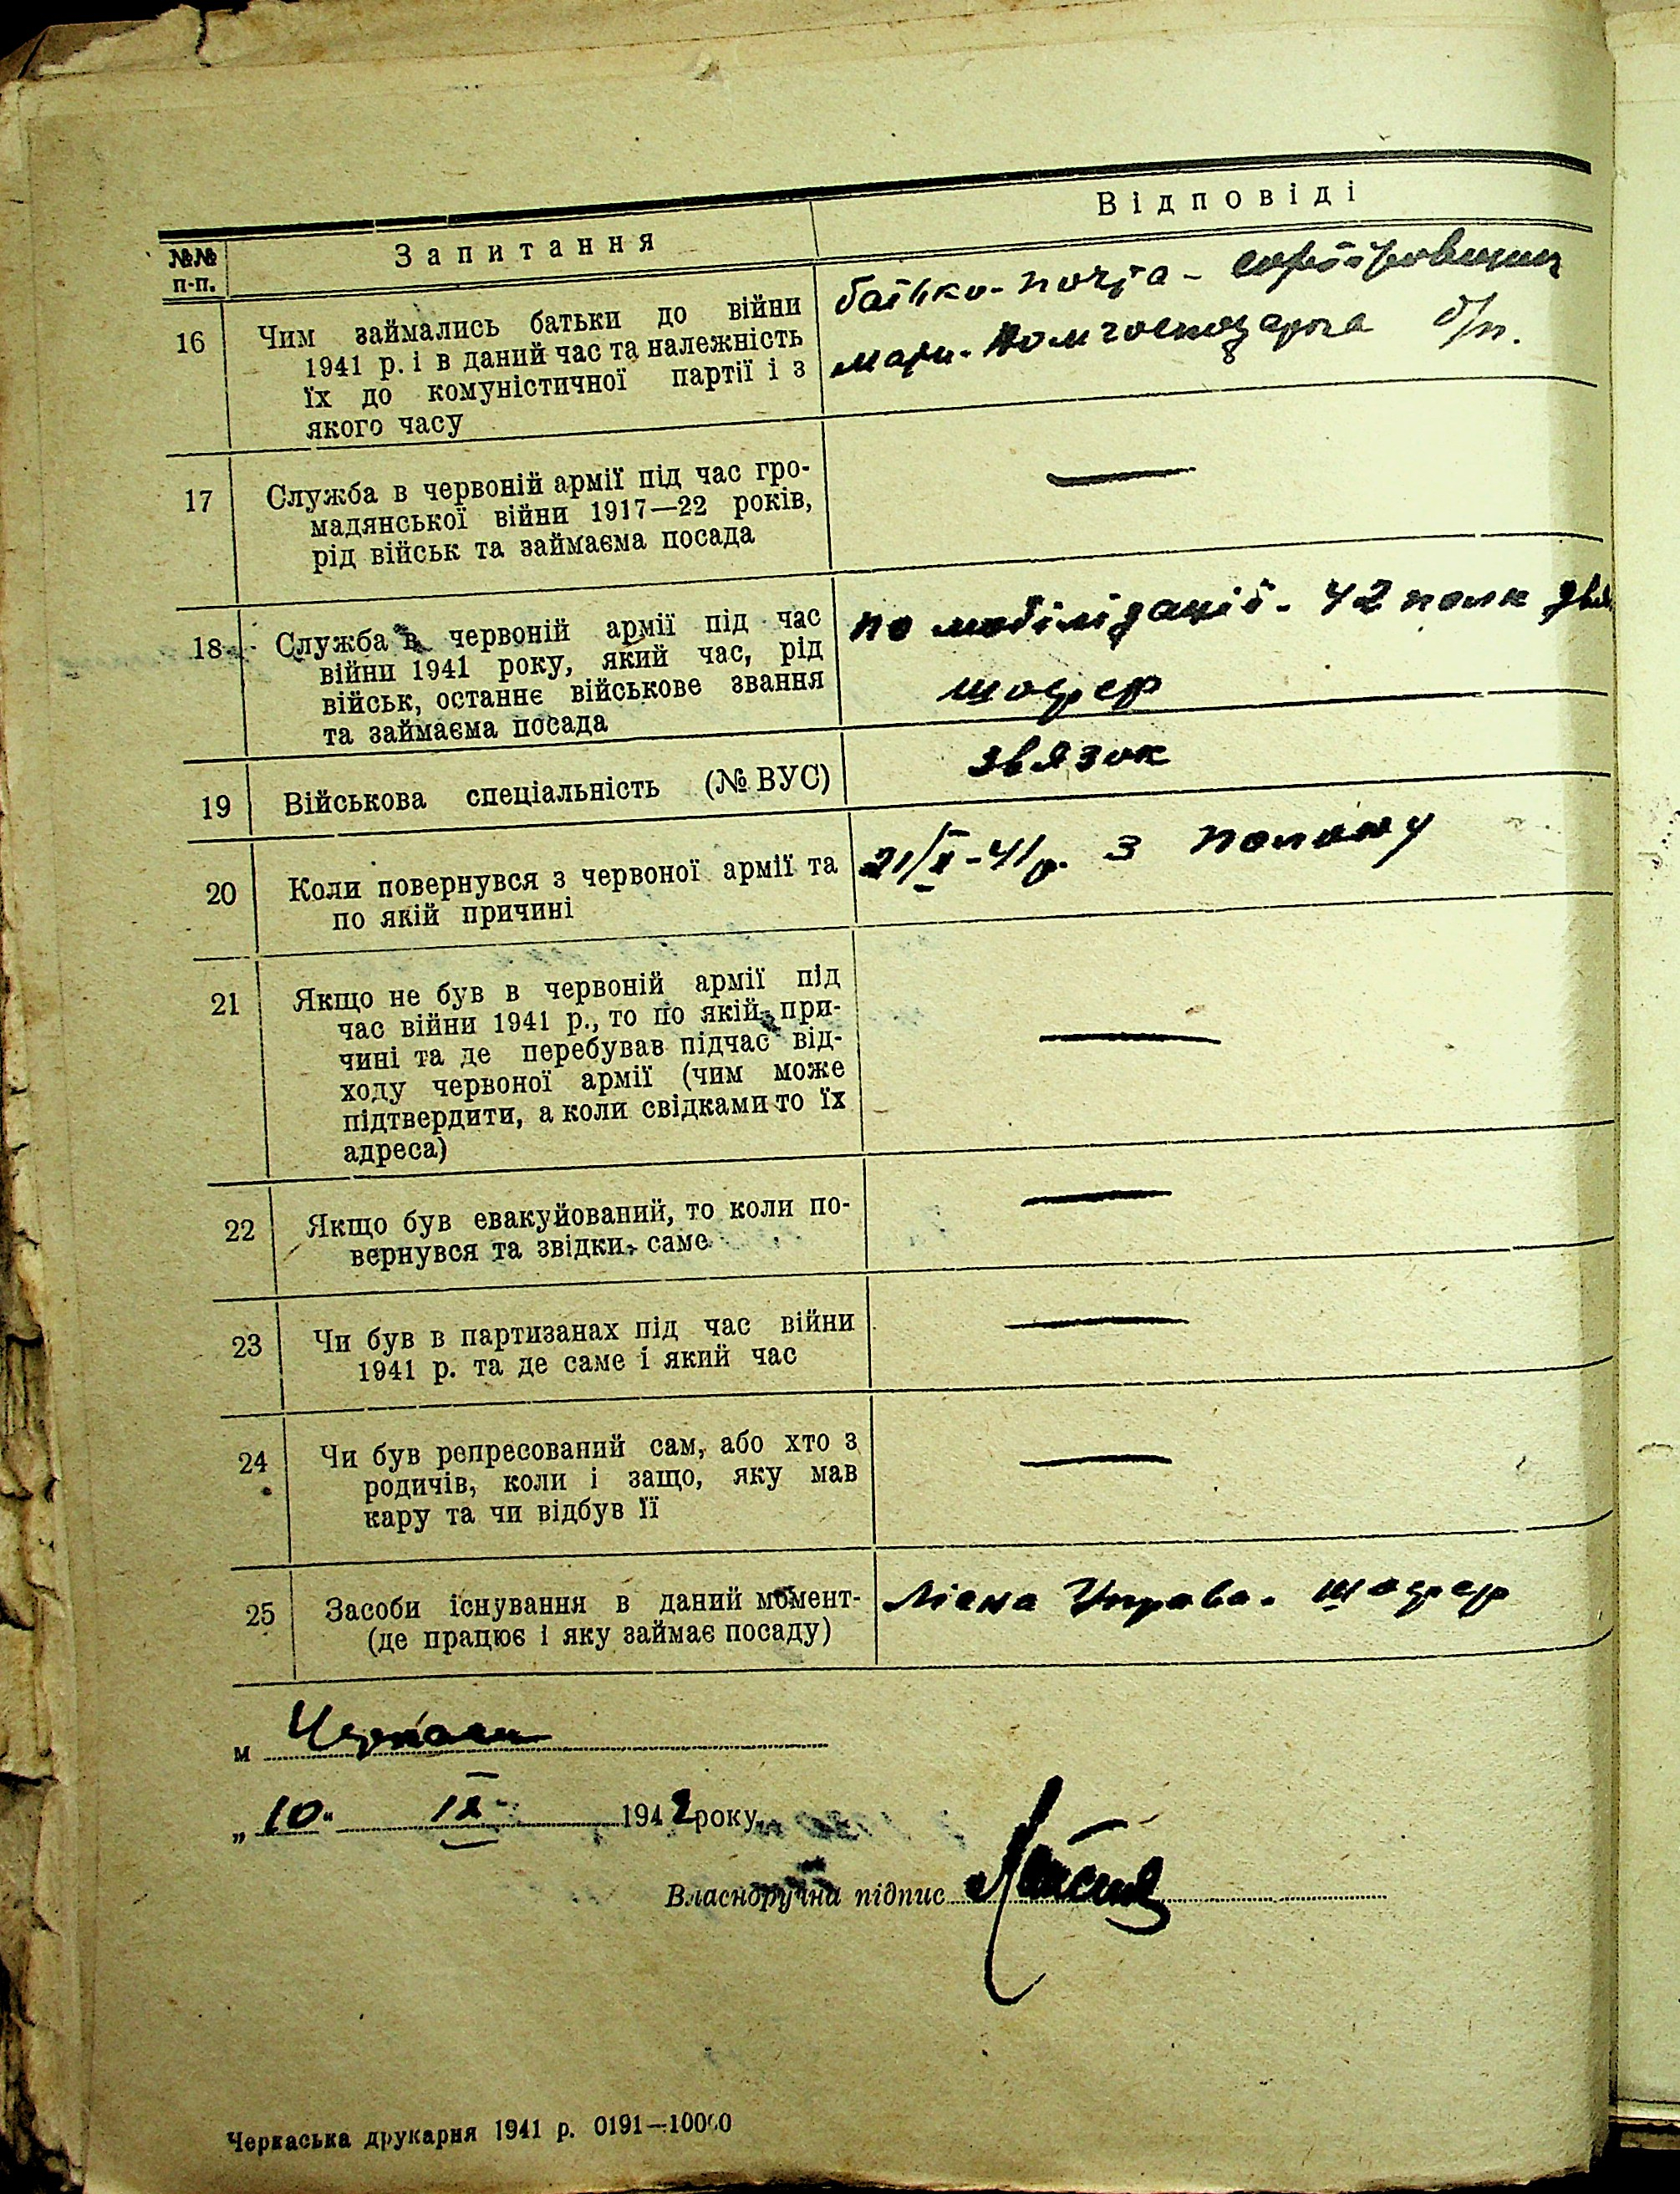 №№ п-п.
Запитання
Відповіді
16
Чим займались батьки до війни
1941 р. і в даний час та належність
їх до комуністичної партії і з
якого часу
батько - почта - сортіровщик
мати - домгосподарка б/п.
17
Служба в червоній армії під час гро-
мадянської війни 1917—22 років,
рід військ та займаєма посада
—
18
Служба в червоній армії під час
війни 1941 року, який час, рід
військ, останнє військове звання
та займаєма посада
по мобілізації - 42 полк
шофер
19
Військова спеціальність (№ ВУС)
звязок
20
Коли повернувся з червоної армії та
по якій причині
21/X-41р. з полону
21
Якщо не був в червоній армії під
час війни 1941 р., то по якій при-
чині та де перебував підчас від-
ходу червоної армії (чим може
підтвердити, а коли свідками то їх
адреса)
—
22
Якщо був евакуйований, то коли по-
вернувся та звідки, саме
—
23
Чи був в партизанах під час війни
1941 р. та де саме і який час
—
24
Чи був репресований сам, або хто з
родичів, коли і защо, яку мав
кару та чи відбув її
—
25
Засоби існування в даний момент-
(де працює і яку займає посаду)
Міска Управа. шофер
м Черкаси
„10“ IX 1942 року
Власноручна підпис
Черкаська друкарня 1941 р. 0191—10000